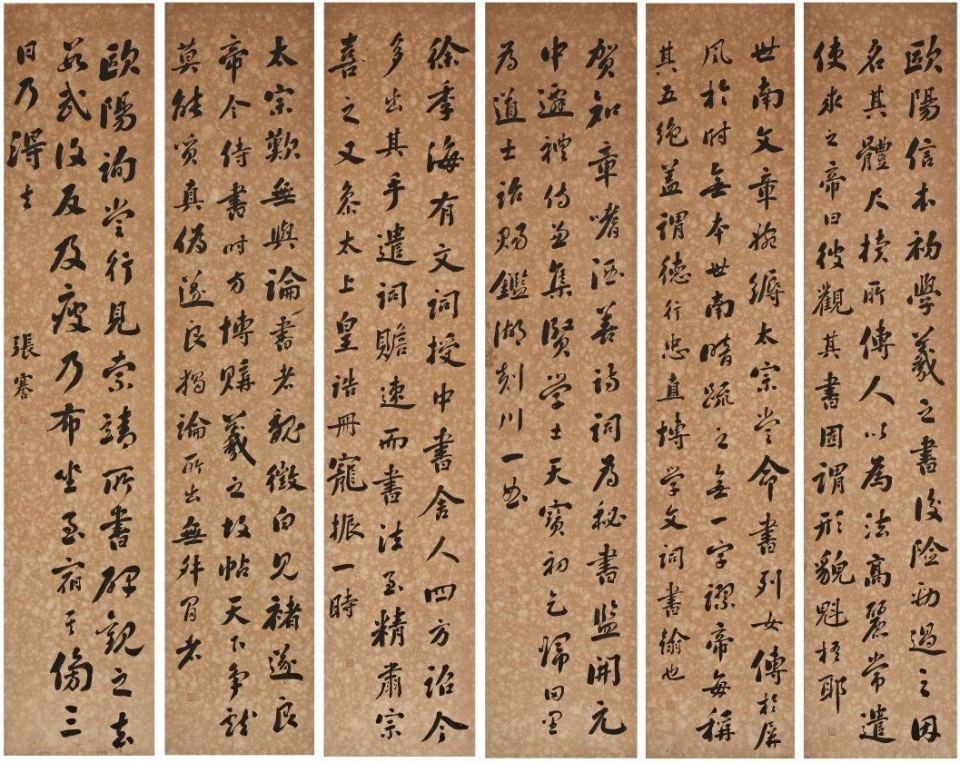 歐陽信本初學羲之書後險勁過之因
名其體尺牘所傳人以為法高麗常遣
使求之帝曰彼觀其書固謂形貌魁梧耶
世南文章婉縟太宗嘗命書列女傳於屏
風於時無本世南暗疏之無一字謬帝每稱
其五絕蓋謂德行忠直博學文詞書翰也
賀知章嗜酒善詩詞為秘書監開元
中遷禮侍兼集賢學士天寶初乞歸田里
為道士詔賜鑑湖剡川一曲
徐季海有文詞授中書舍人四方詔令
多出其手遣詞贍速而書法至精肅宗
喜之又參太上皇誥冊寵振一時
太宗歎無與論書者魏徵白見褚遂良
帝令侍書時方博購羲之故帖天下爭獻
莫能質真偽遂良獨論所出無舛冒者
歐陽詢嘗行見索靖所書碑觀之去
數武後反及疲乃布坐至宿其傍三
日乃得去
張謇